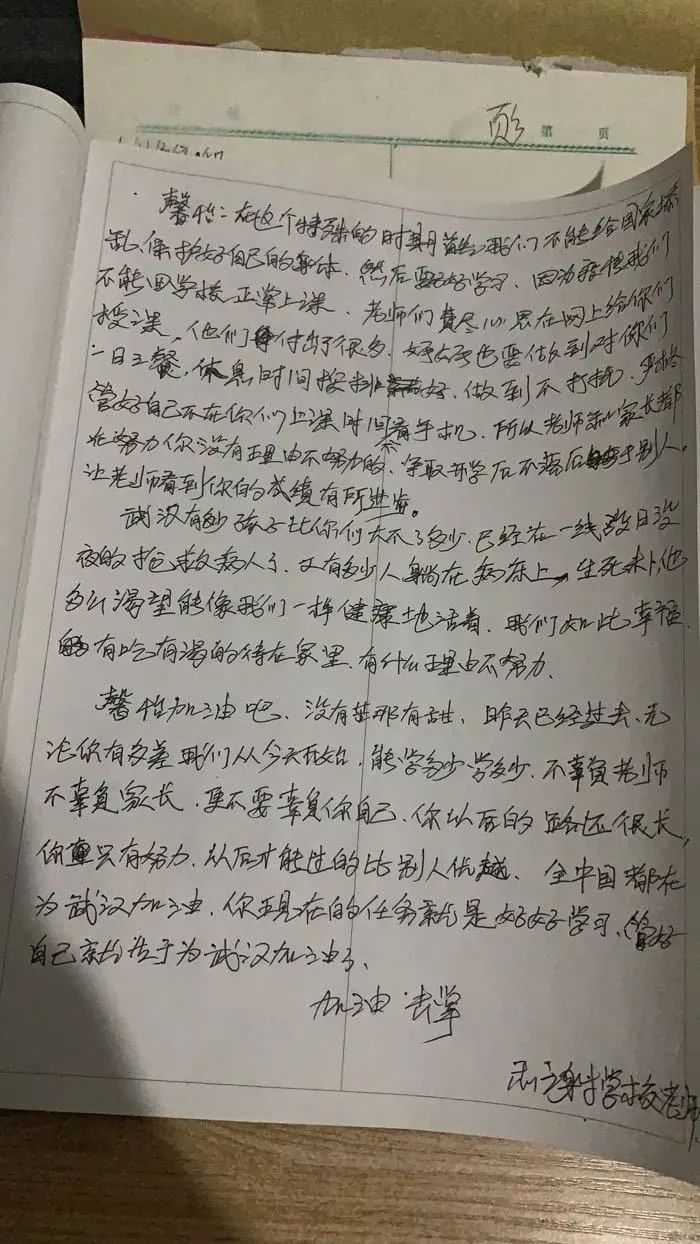 第 页
馨怡：在这个特殊的时期首先我们不能给国家添
乱，保护好自己的身体，然后要好好学习，因为疫情我们
不能回学校正常上课，老师们费尽心思在网上给你们
授课，他们付出了很多，妈妈也要做到对你们
一日三餐，休息时间按排好，做到不打扰，严格
管好自己不在你们上课时间看手机，所以老师和家长都
在努力你没有理由不努力的，争取开学后不落后于别人。
让老师看到你的成绩有所进步。
武汉有多少孩子比你们大不了多少，已经在一线没日没
夜的抢救病人了，又有多少人躺在病床上，生死未卜，他
多么渴望能像我们一样健康地活着，我们如此幸福
有吃有渴的待在家里，有什么理由不努力，
馨怡加油吧，没有苦那有甜，昨天已经过去，无
论你有多差我们从今天开始，能学多少学多少，不辜负老师
不辜负家长，更不要辜负你自己，你以后的路还很长，
你只有努力，以后才能过的比别人优越，全中国都在
为武汉加油，你现在的任务就是好好学习，管好
自己就等于为武汉加油了，
加油
学校老师